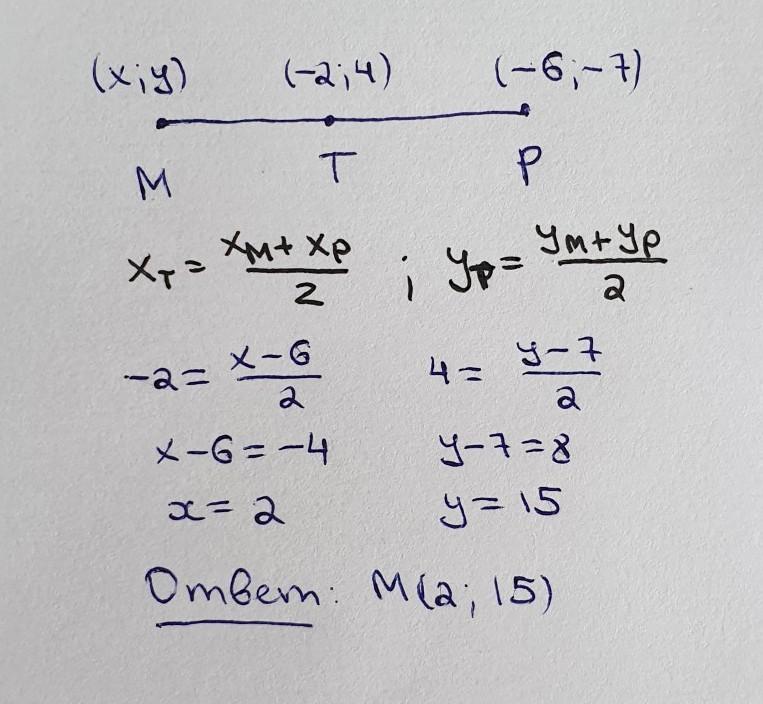 (x;y) (-2;4) (-6;-7)
M T P
x_T = (x_M + x_P)/2 ; y_P = (y_M + y_P)/2
-2 = (x-6)/2 4 = (y-7)/2
x-6=-4 y-7=8
x=2 y=15
Ответ: M(2; 15)